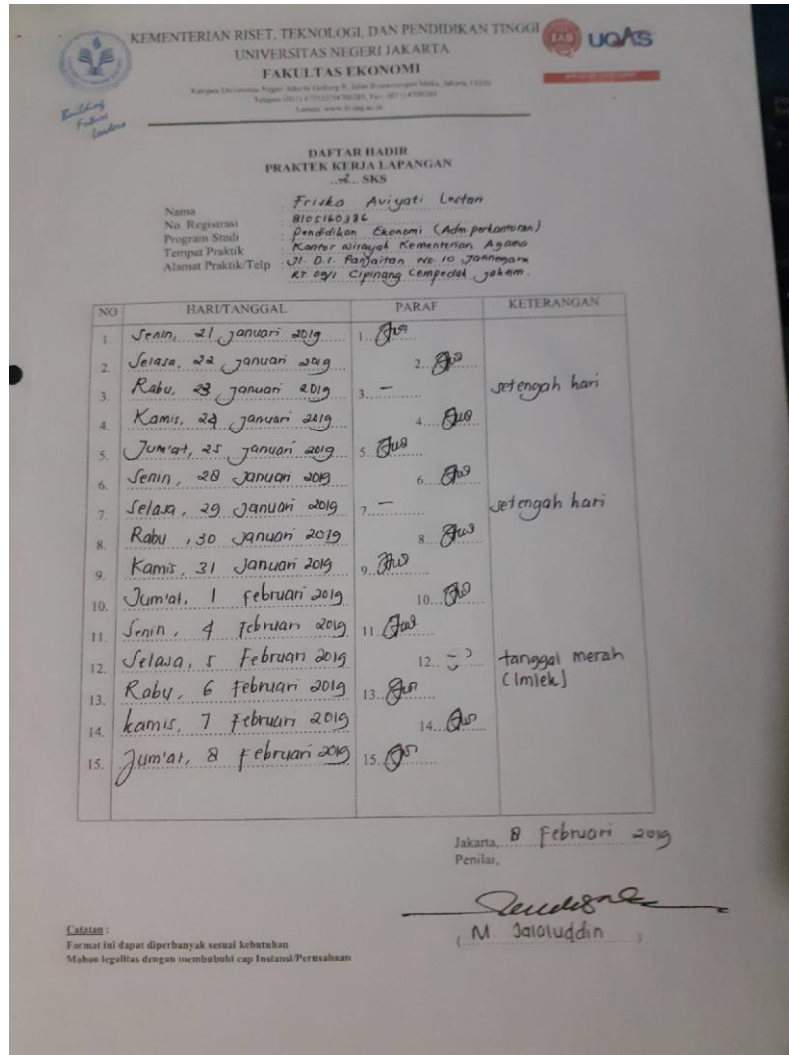 KEMENTERIAN RISET, TEKNOLOGI, DAN PENDIDIKAN TINGGI
UNIVERSITAS NEGERI JAKARTA
FAKULTAS EKONOMI
UQAS
Building
Future
Leaders
DAFTAR HADIR
PRAKTEK KERJA LAPANGAN
...2... SKS
Nama : Friska Aviyati Lestari
No. Registrasi : 8105160386
Program Studi : Pendidikan Ekonomi (Adm perkantoran)
Tempat Praktik : Kantor wilayah Kementerian Agama
Alamat Praktik/Telp : Jl. D.I. Panjaitan No. 10 Jatinegara
RT. 09/1 Cipinang Cempedak Jaktim.
NO HARI/TANGGAL PARAF KETERANGAN
1. Senin, 21 januari 2019 1.
2. Selasa, 22 januari 2019 2.
3. Rabu, 23 januari 2019 3. - setengah hari
4. Kamis, 24 januari 2019 4.
5. Jum'at, 25 januari 2019 5.
6. Senin, 28 januari 2019 6.
7. Selasa, 29 januari 2019 7. - setengah hari
8. Rabu, 30 januari 2019 8.
9. Kamis, 31 januari 2019 9.
10. Jum'at, 1 februari 2019 10.
11. Senin, 4 februari 2019 11.
12. Selasa, 5 Februari 2019 12. tanggal merah
(Imlek)
13. Rabu, 6 februari 2019 13.
14. kamis, 7 februari 2019 14.
15. Jum'at, 8 februari 2019 15.
Jakarta, 8 Februari 2019
Penilai,
( M. Jalaluddin )
Catatan :
Format ini dapat diperbanyak sesuai kebutuhan
Mohon legalitas dengan membubuhi cap Instansi/Perusahaan